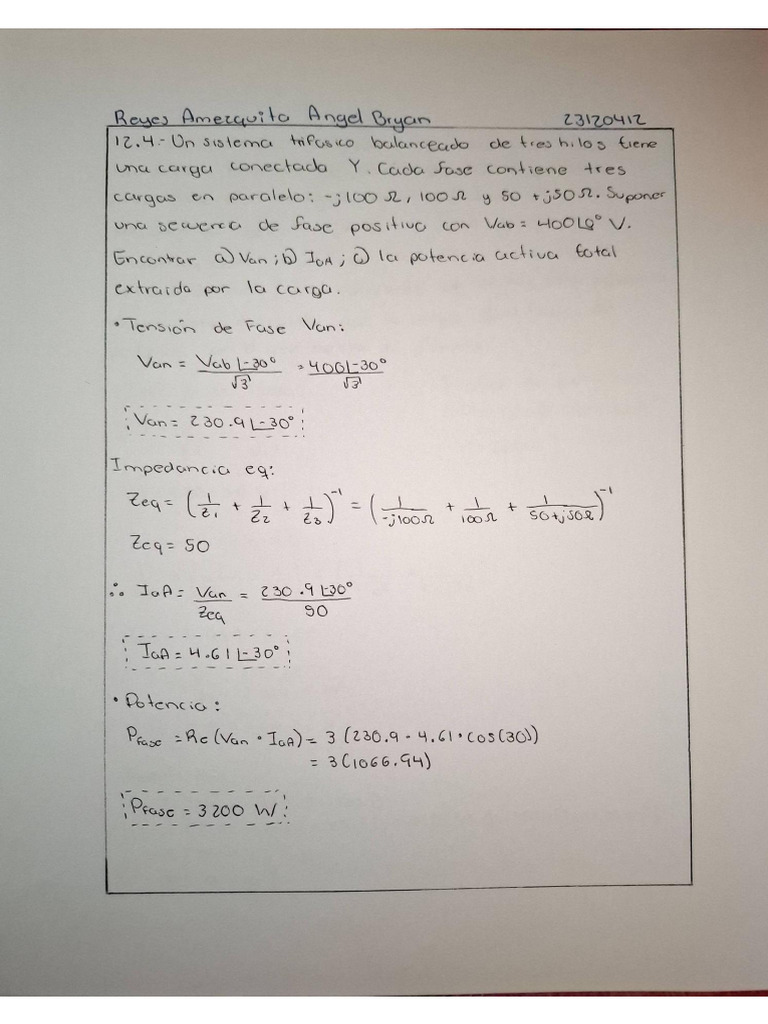 Reyes Amezquita Angel Bryan 23120412
12.4.- Un sistema trifasico balanceado de tres hilos tiene
una carga conectada Y. Cada fase contiene tres
cargas en paralelo: -j100 Ω, 100 Ω y 50 + j50 Ω. Suponer
una secuencia de fase positiva con Vab = 400∠0° V.
Encontrar a) Van ; b) IaA ; c) la potencia activa total
extraida por la carga.
• Tensión de Fase Van:
Van = Vab∠-30°/√3 = 400∠-30°/√3
Van = 230.9∠-30°
Impedancia eq:
Zeq = (1/Z1 + 1/Z2 + 1/Z3)^-1 = (1/-j100Ω + 1/100Ω + 1/50+j50Ω)^-1
Zeq = 50
∴ IaA = Van/Zeq = 230.9∠-30°/50
IaA = 4.61∠-30°
• Potencia:
Pfase = Re(Van • IaA) = 3(230.9 • 4.61 • cos(30))
= 3(1066.94)
Pfase = 3200 W